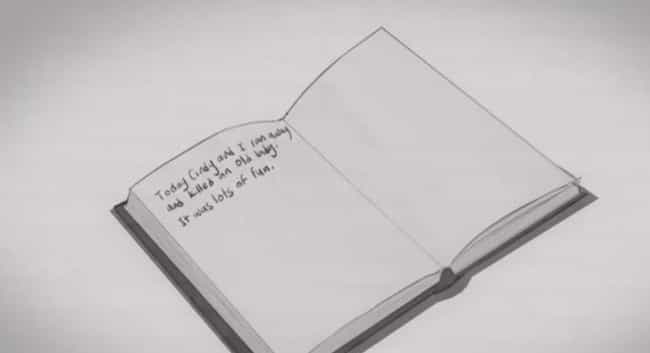 Today Cindy and I ran away
and killed an old lady.
It was lots of fun.